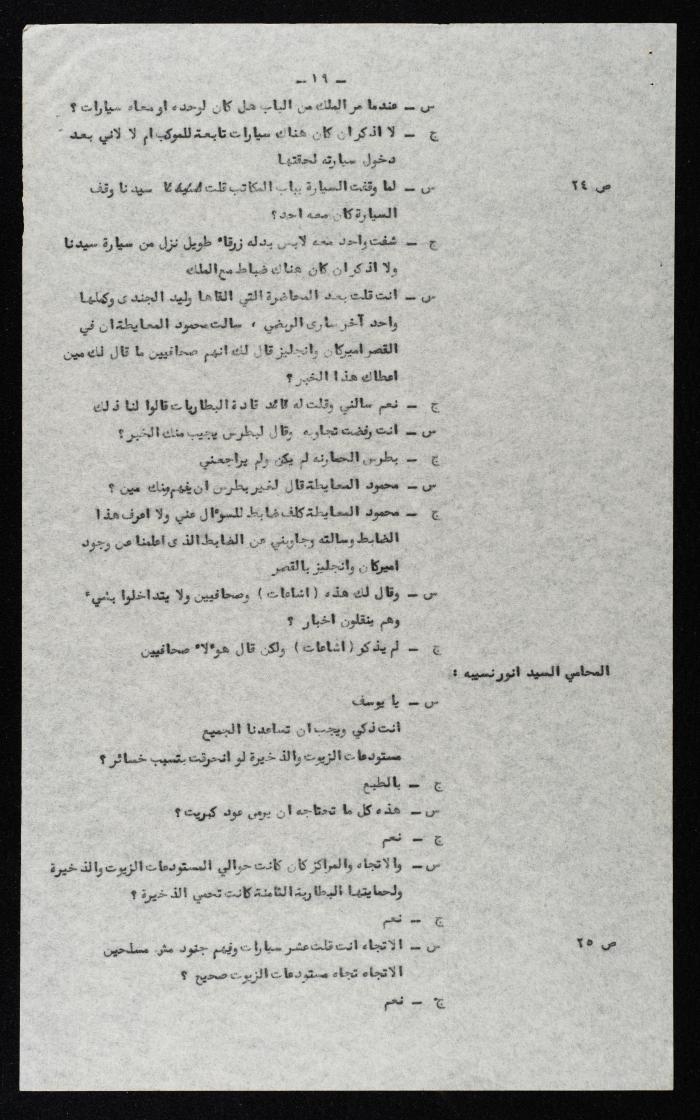 – ١٩ –
س – عندما مر الملك من الباب هل كان لوحده او معاه سيارات ؟
ج – لا اذكر ان كان هناك سيارات تابعة للموكب ام لا لاني بعد
دخول سيارته لحقتها
ص ٢٤ س – لما وقفت السيارة بباب المكاتب قلت سيدنا وقف
السيارة كان معه احد؟
ج – شفت واحد معه لابس بدله زرقاء طويل نزل من سيارة سيدنا
ولا اذكر ان كان هناك ضباط مع الملك
س – انت قلت بعد المحاضرة التي القاها وليد الجندى وكملها
واحد آخر سارى الريضي ، سالت محمود المعايطة ان في
القصر اميركان وانجليز قال لك انهم صحافيين ما قال لك مين
اعطاك هذا الخبر؟
ج – نعم سالني وقلت له قادة البطاريات قالوا لنا ذلك
س – انت رفضت تجاوبه وقال لبطرس يجيب منك الخبر؟
ج – بطرس الحمارنه لم يكن ولم يراجعني
س – محمود المعايطة قال لغير بطرس ان يفهم منك مين ؟
ج – محمود المعايطة كلف ضابط للسوءال عني ولا اعرف هذا
الضابط وسالته وجاوبني عن الضابط الذى اعلمنا عن وجود
اميركان وانجليز بالقصر
س – وقال لك هذه ( اشاعات ) وصحافيين ولا يتداخلوا بشيء
وهم ينقلون اخبار ؟
ج – لم يذكر ( اشاعات ) ولكن قال هوءلاء صحافيين
المحامي السيد انور نسيبه :
س – يا يوسف
انت ذكي ويجب ان تساعدنا الجميع
مستودعات الزيوت والذخيرة لو انحرقت بتسبب خسائر ؟
ج – بالطبع
س – هذه كل ما تحتاجه ان يرمى عود كبريت؟
ج – نعم
س – والاتجاه والمراكز كان كانت حوالي المستودعات الزيوت والذخيرة
ولحمايتها البطارية الثامنة كانت تحمي الذخيرة ؟
ج – نعم
ص ٢٥ س – الاتجاه انت قلت عشر سيارات وفيهم جنود مش مسلحين
الاتجاه تجاه مستودعات الزيوت صحيح ؟
ج – نعم